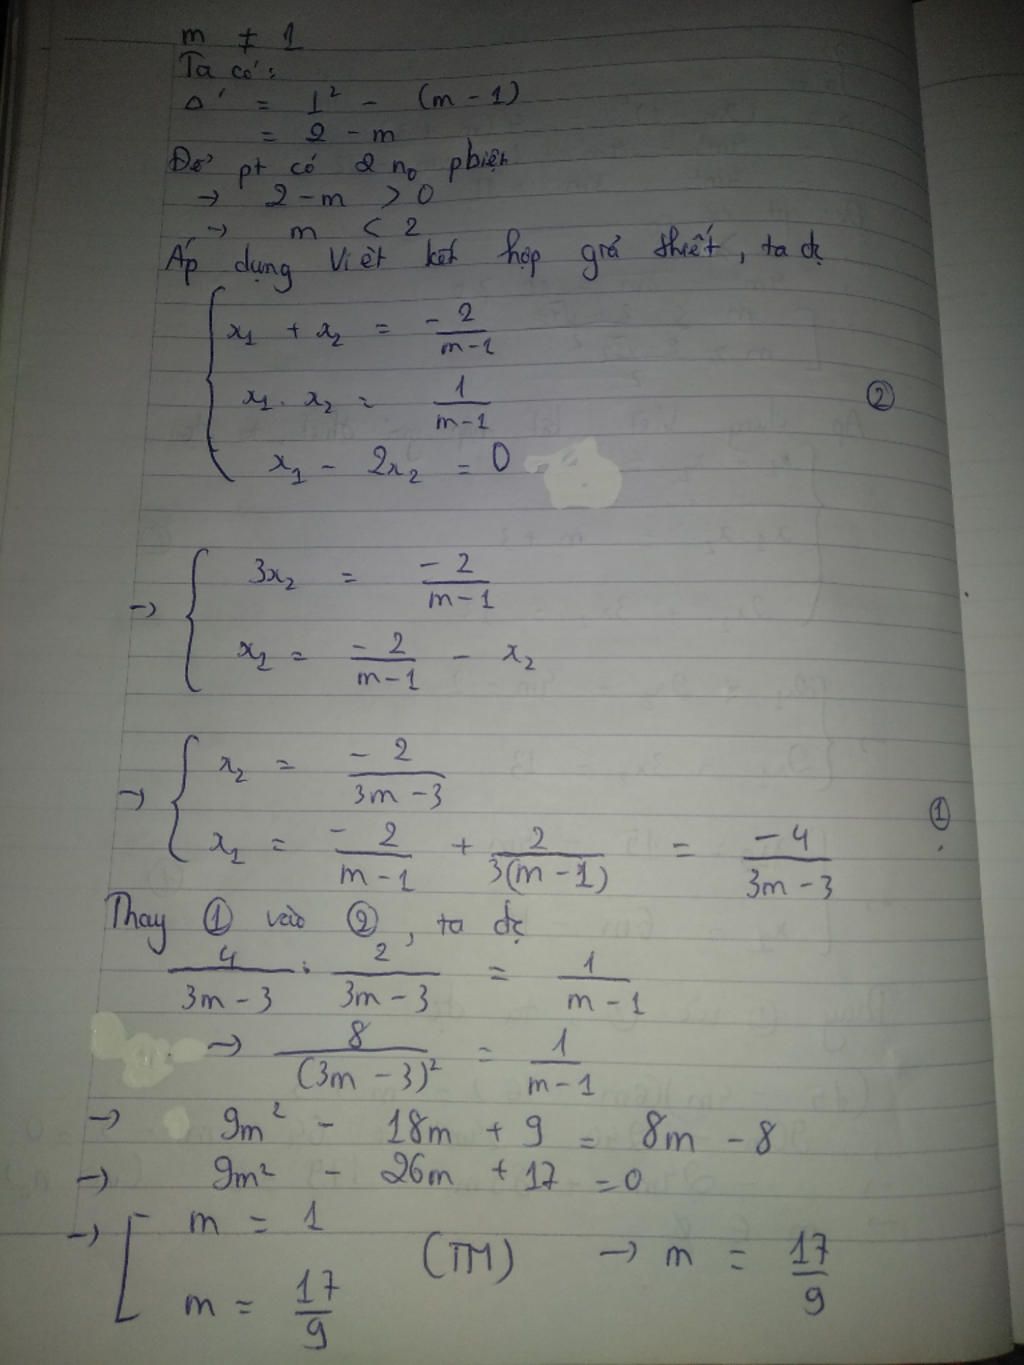 m ≠ 1
Ta có:
Δ' = 1² - (m - 1)
= 2 - m
Để pt có 2 n₀ pbiệt
→ 2 - m > 0
→ m < 2
Áp dụng Viét kết hợp giả thiết, ta đc
x₁ + x₂ = -2/(m-1)
x₁ . x₂ = 1/(m-1) ②
x₁ - 2x₂ = 0
→ 3x₂ = -2/(m-1)
x₁ = -2/(m-1) - x₂
→ x₂ = -2/(3m-3)
x₁ = -2/(m-1) + 2/(3(m-1)) = -4/(3m-3) ①
Thay ① vào ②, ta đc
4/(3m-3) . 2/(3m-3) = 1/(m-1)
→ 8/(3m-3)² = 1/(m-1)
→ 9m² - 18m + 9 = 8m - 8
→ 9m² - 26m + 17 = 0
→ m = 1
m = 17/9 (TM) → m = 17/9